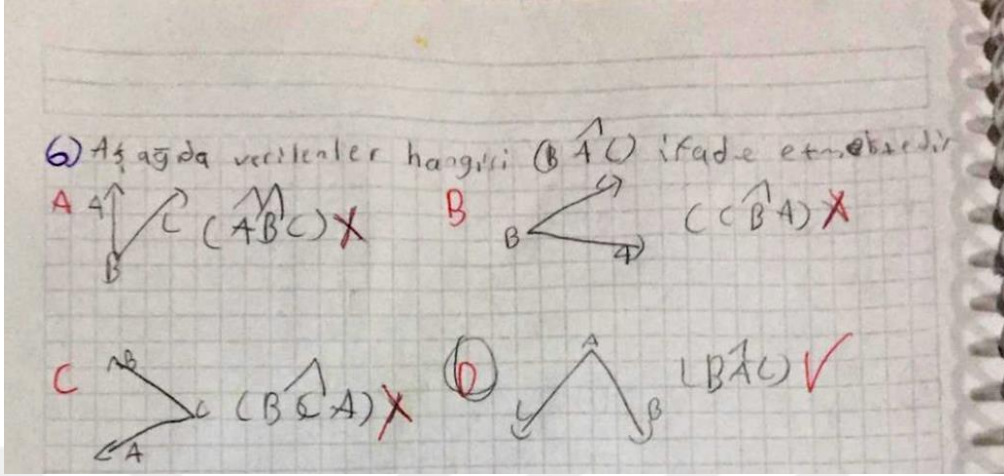 6) Aşağda verilenler hangisi (BÂC) ifade etmektedir
A A C B (AB̂C) X
B C B A (CB̂A) X
C B C A (BĈA) X
D A C B (BÂC) ✓